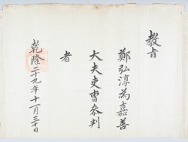 教旨
鄭弘淳為嘉善
大夫吏曹參判
者
乾隆二十九年十一月三十日